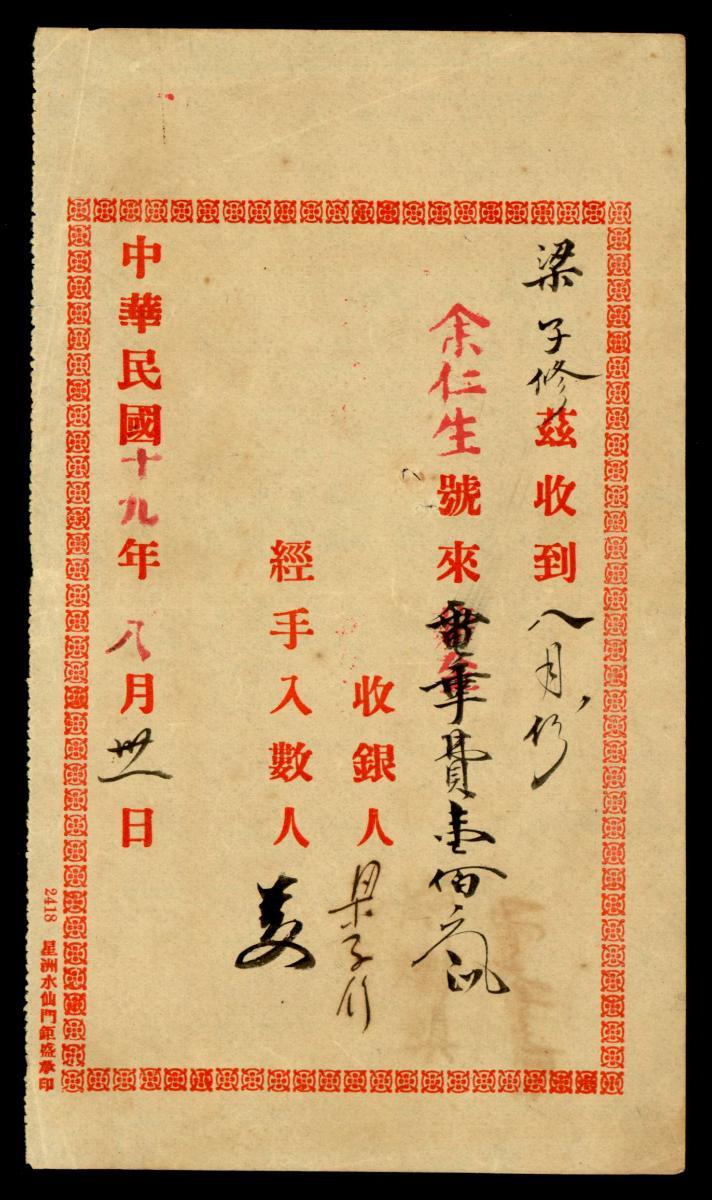 梁子修茲收到八月份
余仁生號來電車費壹佰
收銀人梁子
經手入數人
中華民國十九年八月卅一日
2418 星洲水仙門鉅盛承印